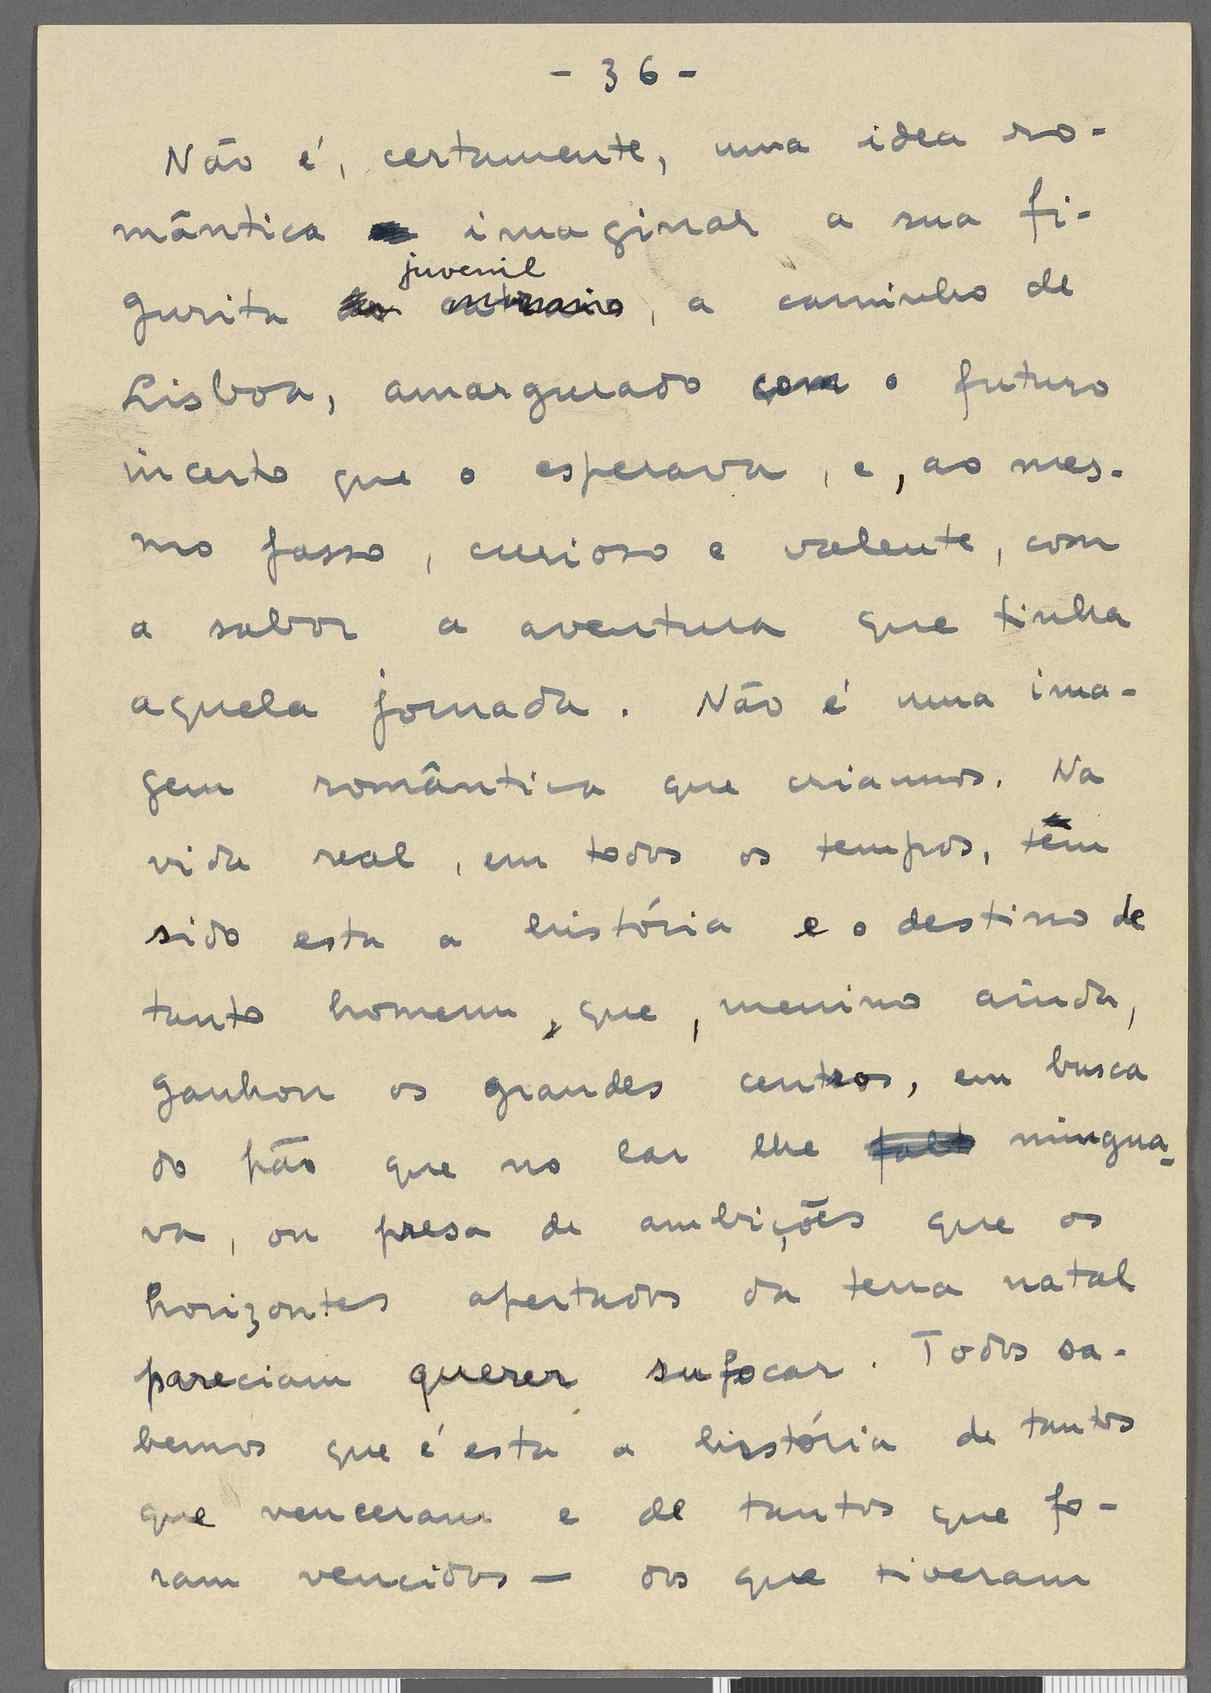 - 36 -
Não é, certamente, uma idea ro-
mântica imaginar a sua fi-
juvenil
gurita , a caminho de
Lisboa, amargurado com o futuro
incerto que o esperava, e, ao mes-
mo passo, curioso e valente, com
a sabor a aventura que tinha
aquela jornada. Não é uma ima-
gem romântica que criamos. Na
vida real, em todos os tempos, tem
sido esta a história e o destino de
tanto homem, que, menino ainda,
ganhou os grandes centros, em busca
do pão que no lar lhe mingua-
va, ou presa de ambições que os
horizontes apertados da terra natal
pareciam querer sufocar. Todos sa-
bemos que é esta a história de tantos
que venceram e de tantos que fo-
ram vencidos — dos que tiveram